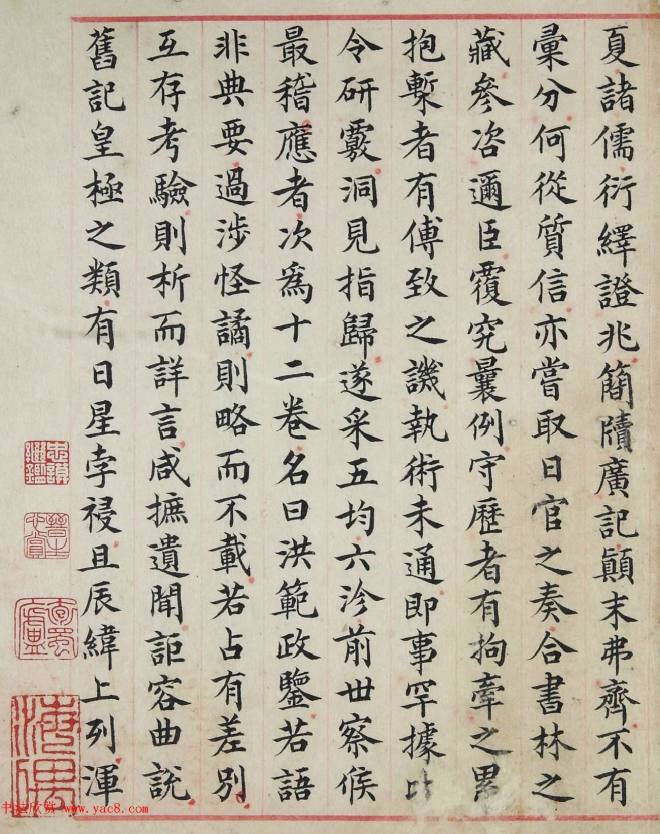 夏諸儒衍繹證兆簡牘廣記顛末弗齊不有
彙分何從質信亦嘗取日官之奏合書林之
藏參咨邇臣覆究曩例守歷者有拘牽之累
抱槧者有傅致之譏執術未通即事罕據比
令研覈洞見指歸遂采五均六沴前世察候
最稽應者次爲十二卷名曰洪範政鑒若語
非典要過涉怪譎則略而不載若占有差別
互存考驗則析而詳言咸摭遺聞詎容曲說
舊記皇極之類有日星孛祲且辰緯上列渾
书法欣赏 www.yac8.com